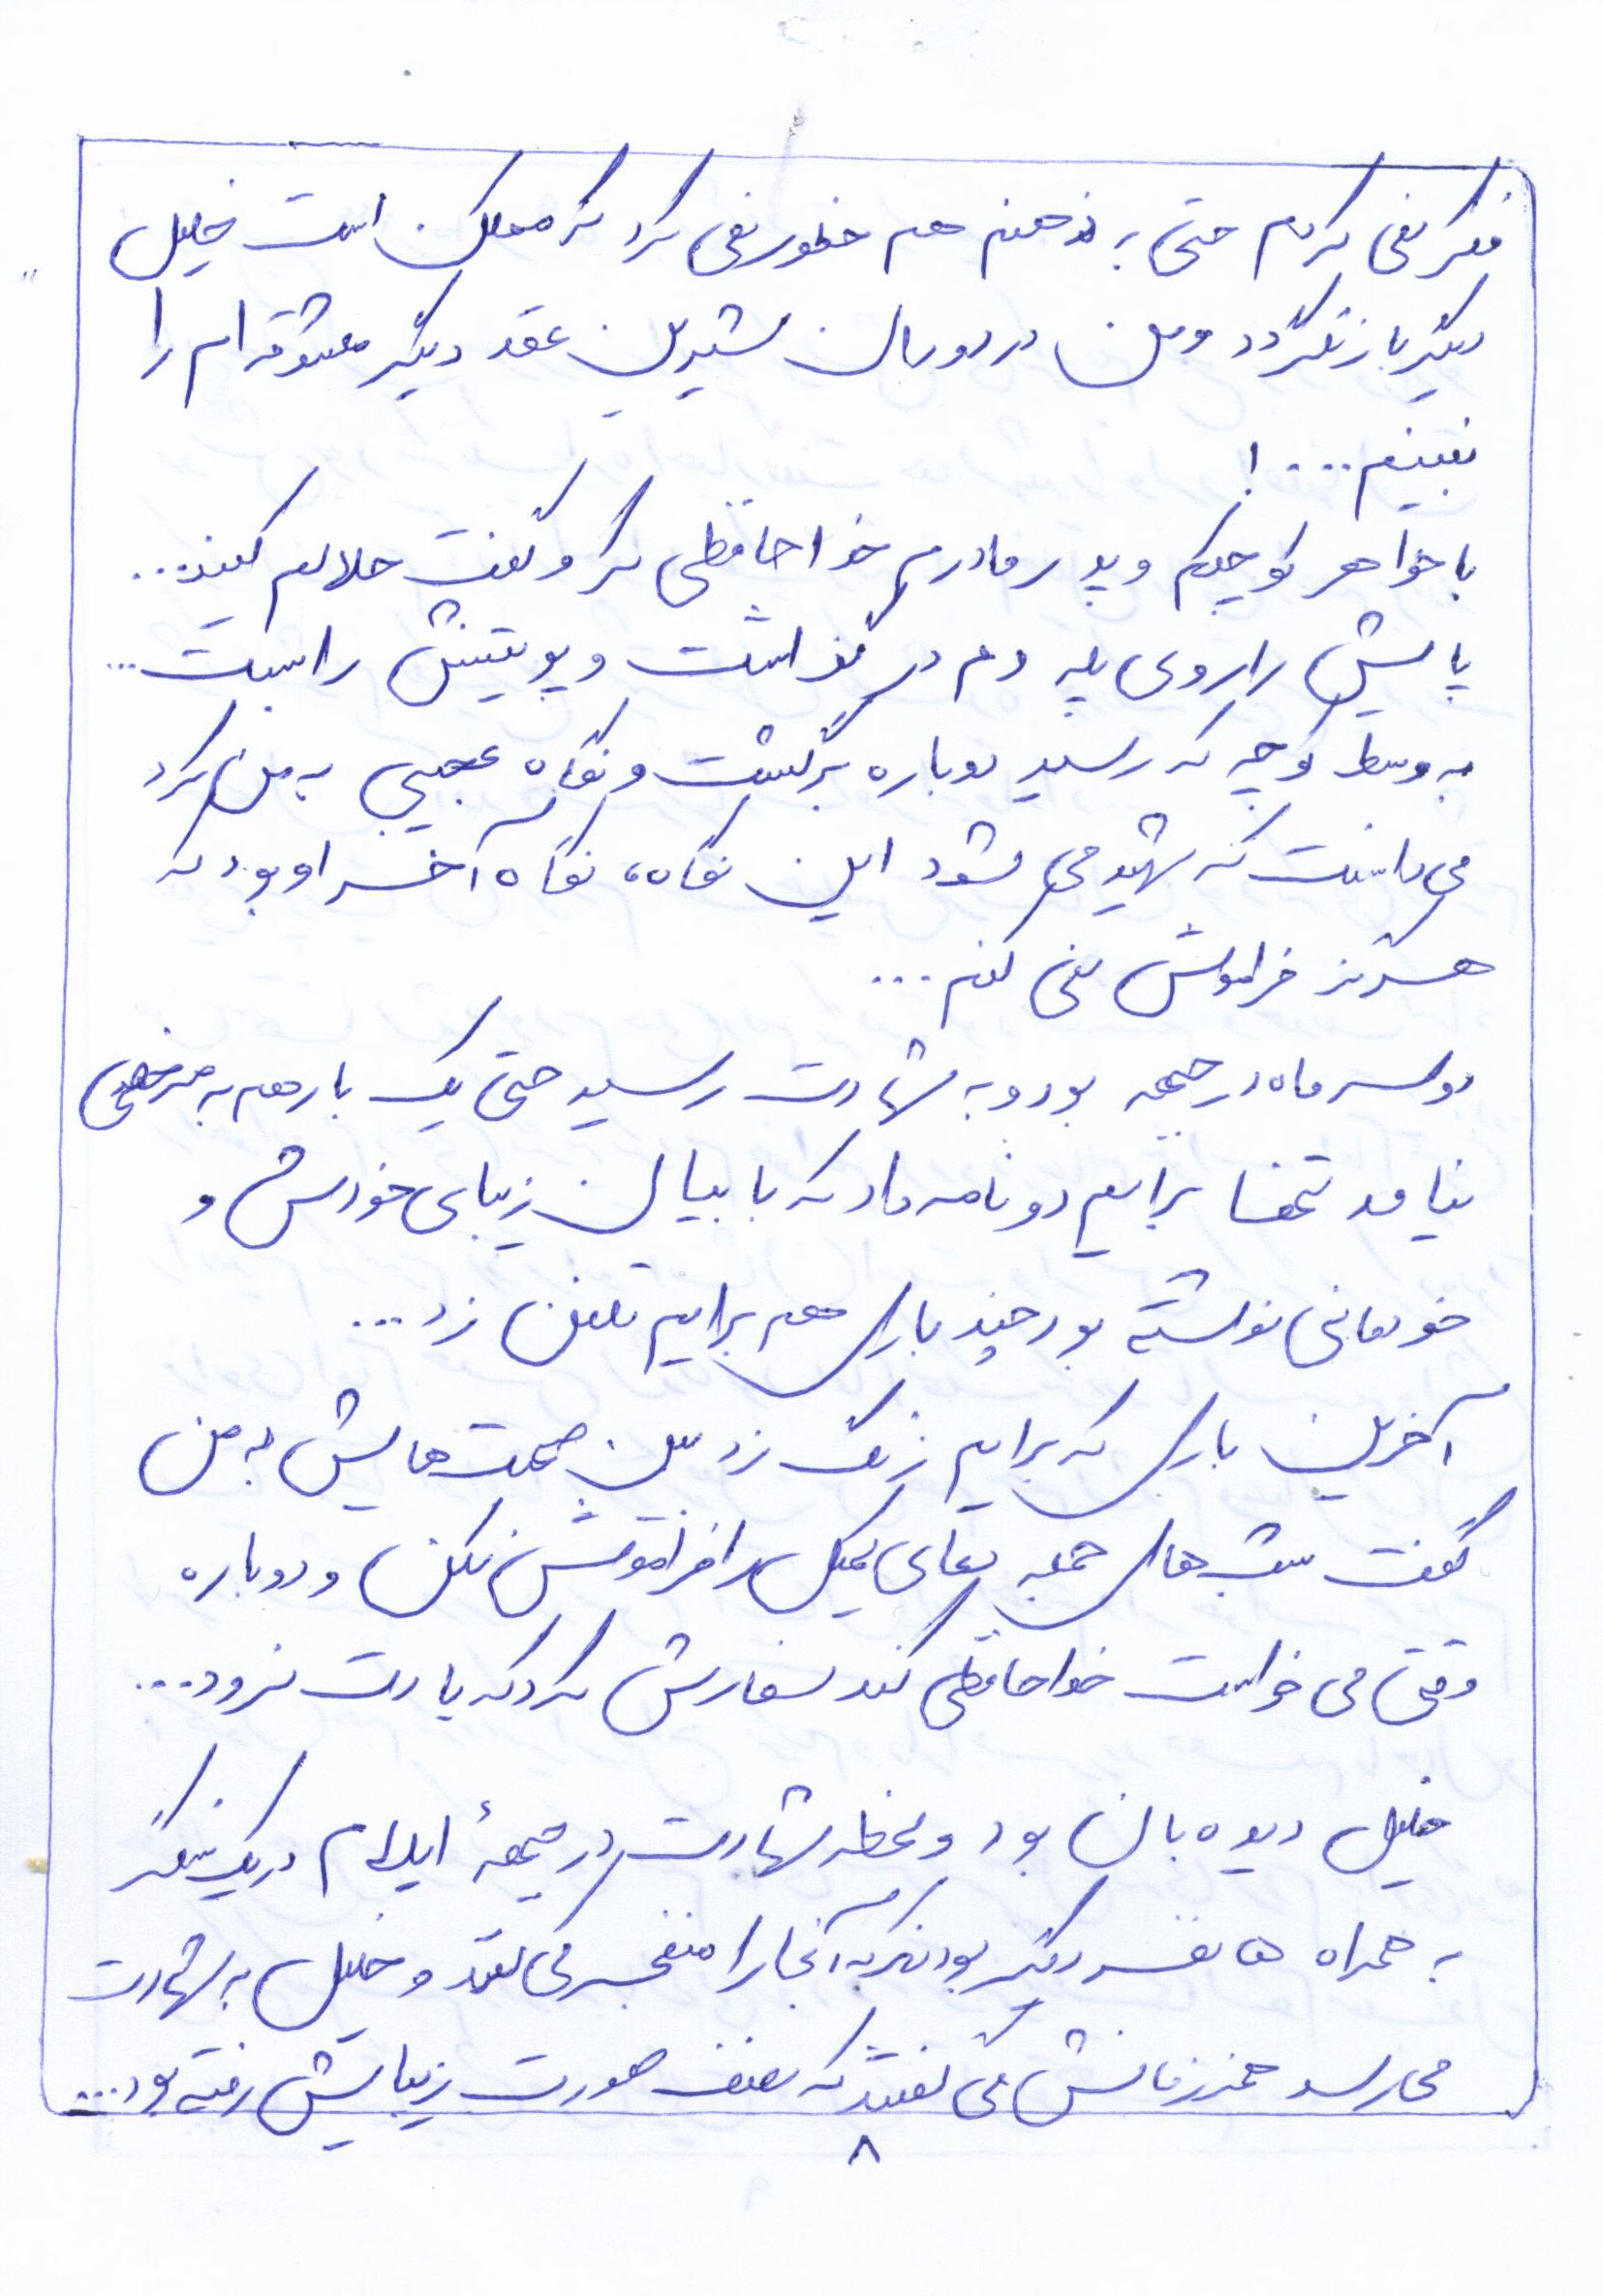 فکر نمی کردم حتی به ذهنم هم خطور نمی کرد که ممکن است خلیل
دیگر بازنگردد و من در دوران شیرین عقد دیگر معشوقه ام را
نبینم....!
با خواهر کوچیکم و پدر مادرم خداحافظی کرد و گفت حلالم کنید...
پایش را روی پله دم در گذاشت و پوتینش را بست...
به وسط کوچه که رسید دوباره برگشت و نگاه عجیبی به من کرد
می دانست که شهید می شود این نگاه، نگاه آخر او بود که
هرگز فراموش نمی کنم...
دو سه ماه در جبهه بود و به شهادت رسید حتی یک بار هم به مرخصی
نیامد تنها برایم دو نامه داد که با بیان زیبای خودش و
خودمانی نوشته بود چند باری هم برایم تلفن زد...
آخرین باری که برایم زنگ زد بین صحبت هایش به من
گفت شب های جمعه دعای کمیل را فراموش نکن و دوباره
وقتی می خواست خداحافظی کند سفارش کرد که یادت نرود...
خلیل دیده بان بود و لحظه شهادت در جبههٔ ایلام در یک سنگر
به همراه ۵ نفر دیگر بودند که آنجا را منفجر می کنند و خلیل به شهادت
می رسد همرزمانش می گفتند که نصف صورت زیبایش رفته بود...
۸